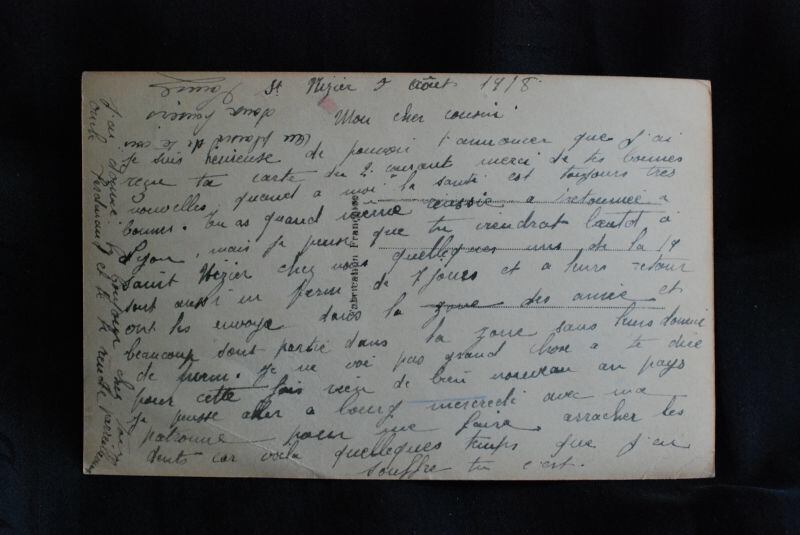 St Nizier 5 août 1918
Mon cher cousin
Je suis heureuse de pouvoir t'annoncer que j'ai
reçu ta carte du 2 courant merci de tes bonnes
nouvelles quand a moi la santé est toujours très
bonnes. Tu as quand même réussie a retournée a
Lyon, mais je pense que tu viendrat bientot a
saint Nizier chez vous quelleques uns de la 19
sont aussi en perm de 7 jours et a leurs retour
ont les envoye dans la zone des armée et
beaucoup sont partie dans la zone sans leurs donné
de perm. Je ne voi pas grand chose a te dire
pour cette fois rien de bien nouveau au pays
Je pense aller a bourg mercredi avec ma
patronne pour me faire arracher les
dents car voila quelleques temps que j'en
souffre tu c'est.
J'ai donné le bonjour chez mon
oncle Ferdinand et te le rende pareillement
au plaisir de te
Fabrication Française